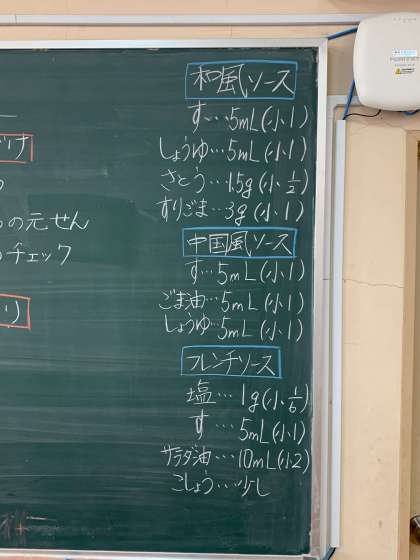 和風ソース
す…5mL(小1)
しょうゆ…5mL(小1)
さとう…1.5g(小1/2)
すりごま…3g(小1)
中国風ソース
す…5mL(小1)
ごま油…5mL(小1)
しょうゆ…5mL(小1)
フレンチソース
塩…1g(小1/6)
す…5mL(小1)
サラダ油…10mL(小2)
こしょう…少し
の元せん
チェック
FORTINET